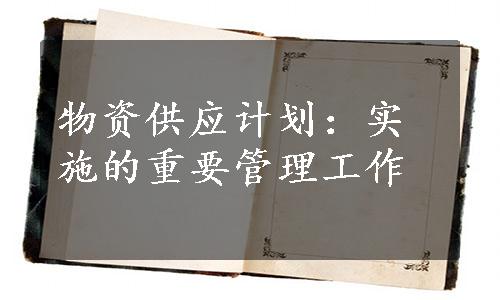 物资供应计划：实
施的重要管理工作